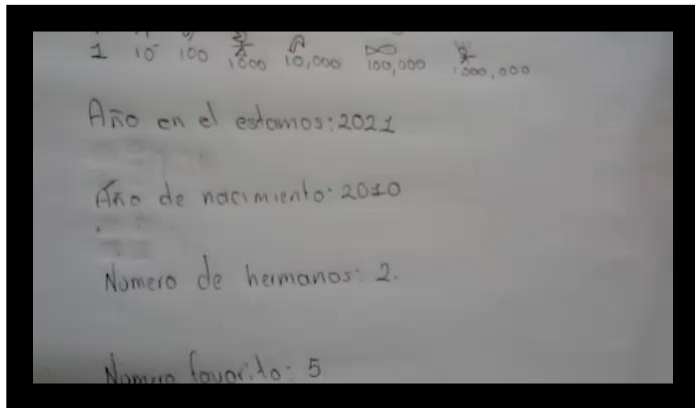 1 10 100 1000 10,000 100,000 1000,000
Año en el estamos: 2021
Año de nacimiento: 2010
Numero de hermanos: 2.
Numero favorito: 5